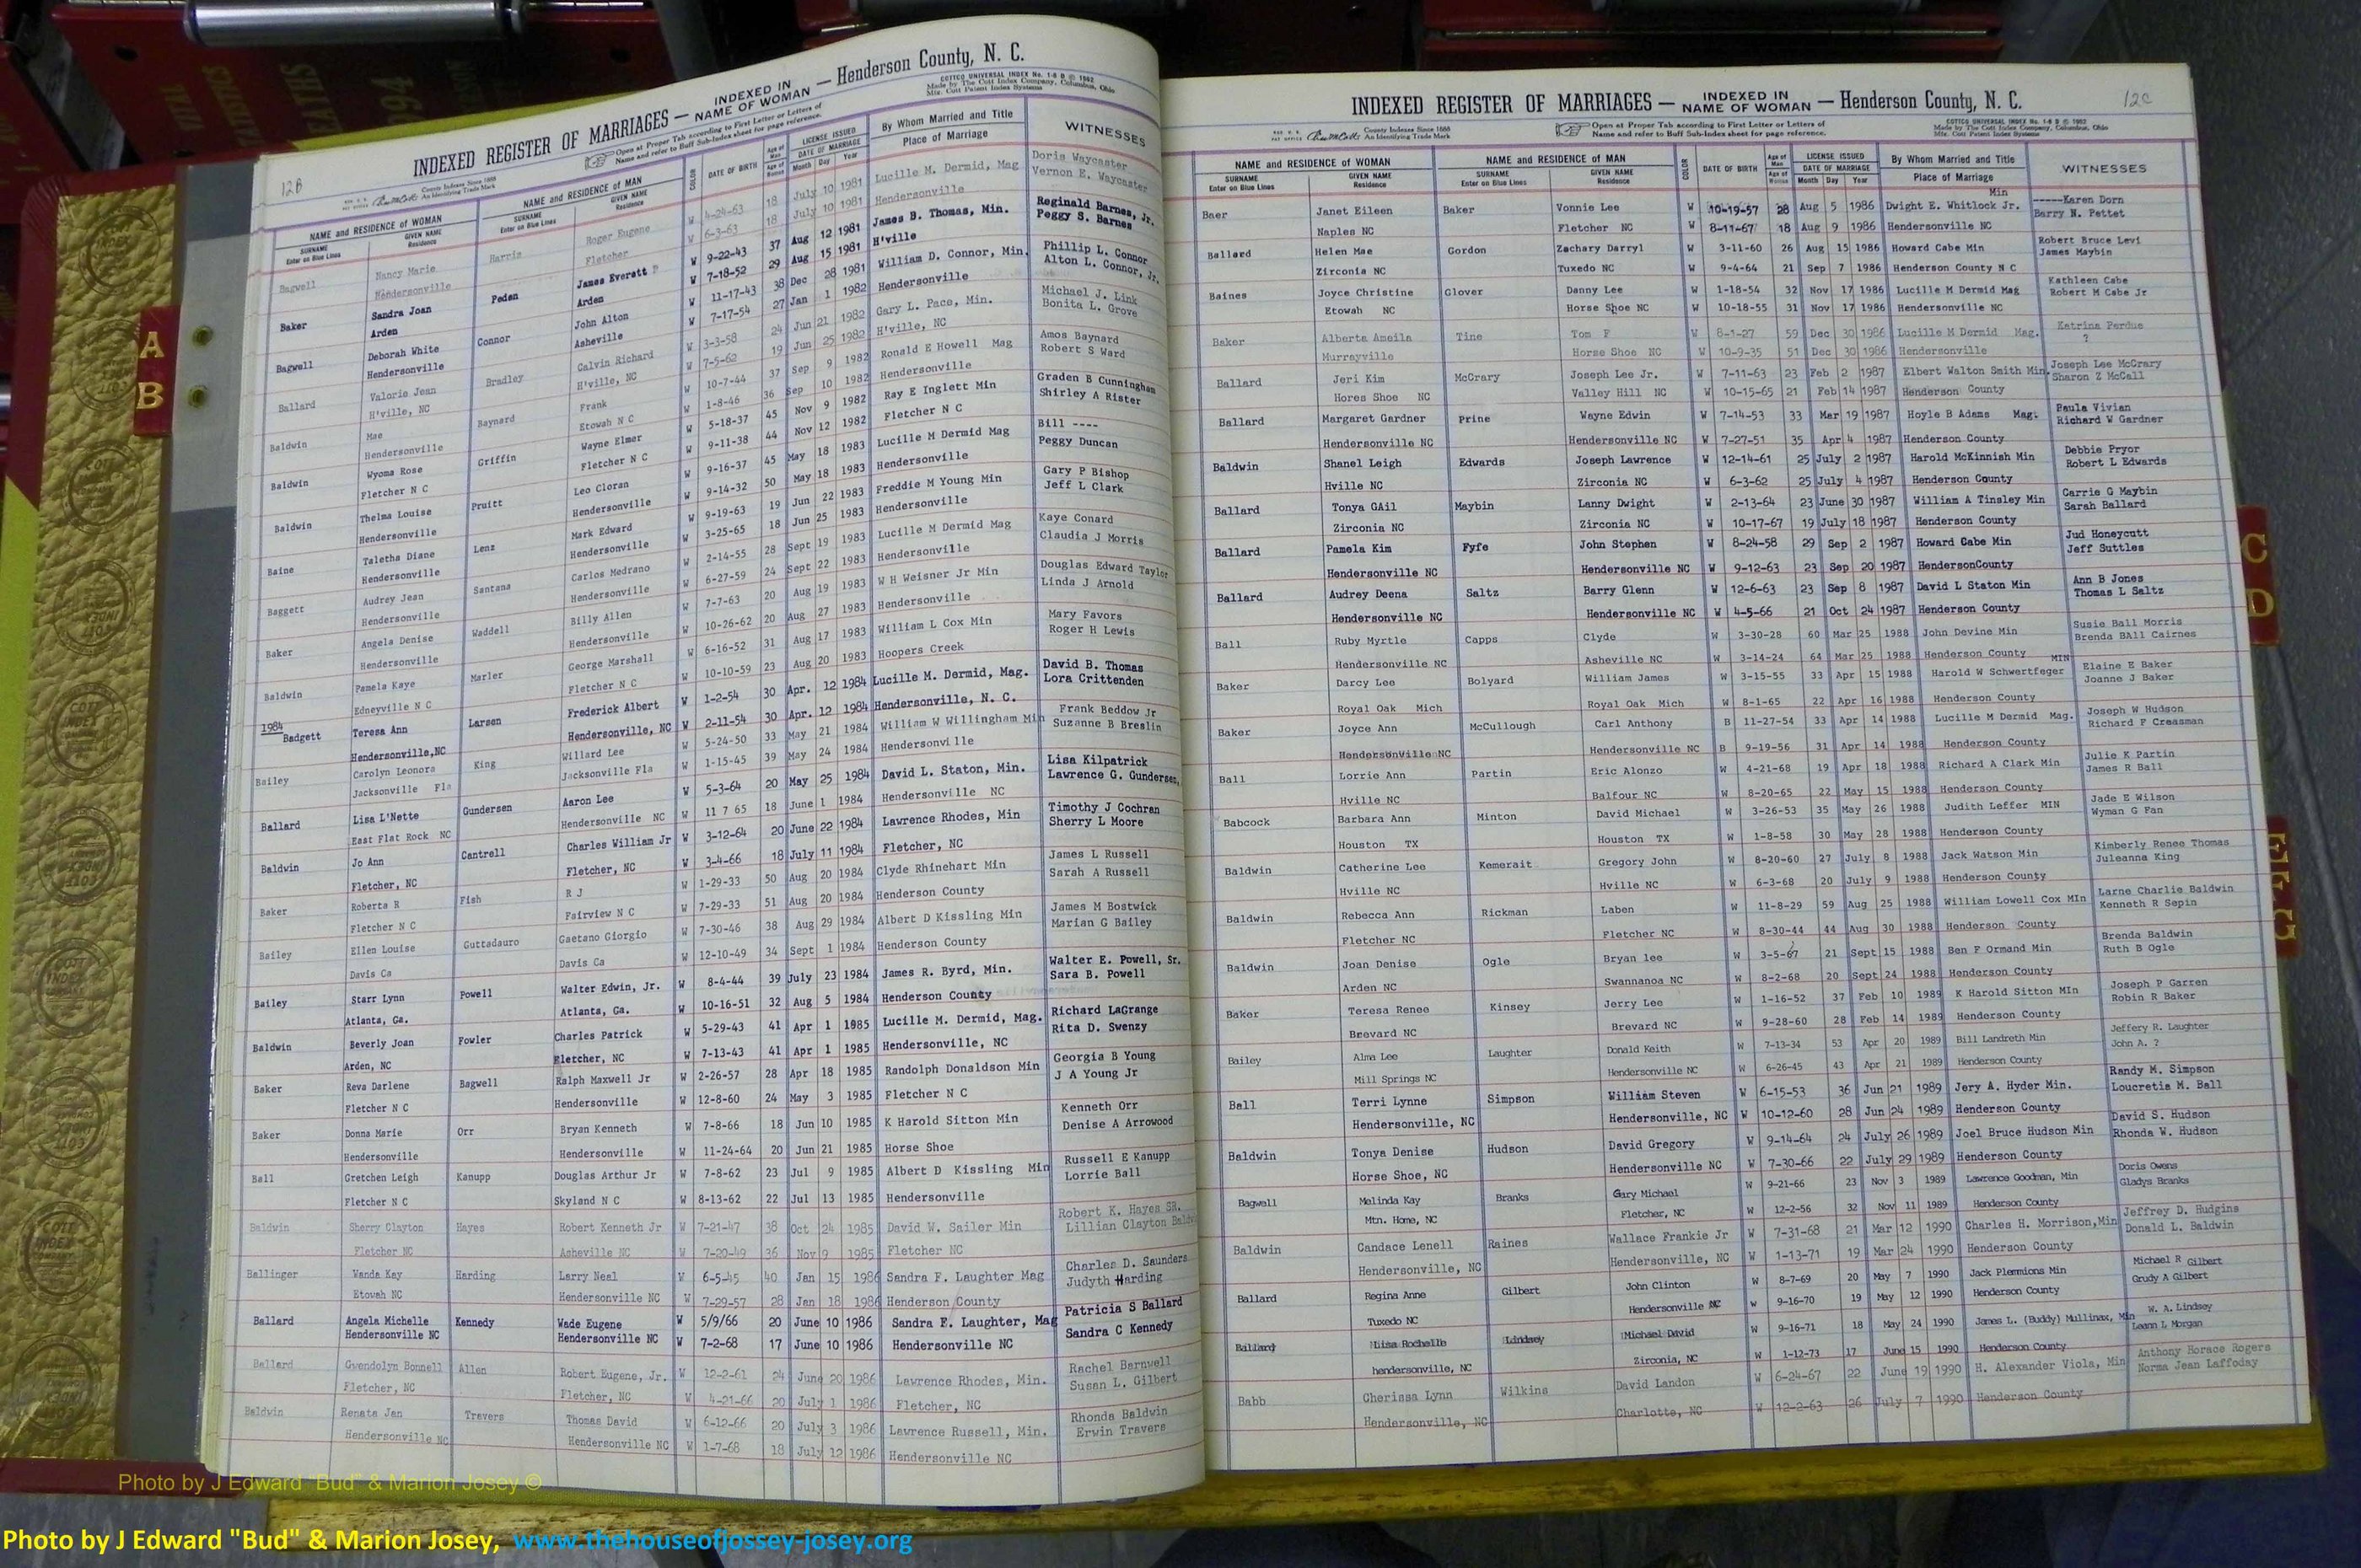 INDEXED REGISTER OF MARRIAGES — INDEXED IN NAME OF WOMAN — Henderson County, N. C.
12B
COTTCO UNIVERSAL INDEX No. 1-8 D © 1962
Made by The Cott Index Company, Columbus, Ohio
Mfr. Cott Patent Index Systems
County Indexes Since 1888
An Identifying Trade Mark
Open at Proper Tab according to First Letter or Letters of
Name and refer to Buff Sub-Index sheet for page reference.
NAME and RESIDENCE OF WOMAN NAME and RESIDENCE OF MAN COLOR DATE OF BIRTH Age of Man Age of Woman LICENSE ISSUED By Whom Married and Title WITNESSES
SURNAME GIVEN NAME SURNAME GIVEN NAME DATE OF MARRIAGE Place of Marriage
Enter on Blue Lines Residence Enter on Blue Lines Residence Month Day Year
Bagwell Nancy Marie Harris Roger Eugene W 4-24-63 18 July 10 1981 Lucille M. Dermid, Mag Doris Waycaster
Hendersonville Fletcher W 6-3-63 18 July 10 1981 Hendersonville Vernon E. Waycaster
Baker Sandra Joan Peden James Everett P W 9-22-43 37 Aug 12 1981 James B. Thomas, Min. Reginald Barnes, Jr.
Arden Arden W 7-18-52 29 Aug 15 1981 H'ville Peggy S. Barnes
Bagwell Deborah White Connor John Alton W 11-17-43 38 Dec 28 1981 William D. Connor, Min. Phillip L. Connor
Hendersonville Asheville W 7-17-54 27 Jan 1 1982 Hendersonville Alton L. Connor, Jr.
Ballard Valorie Jean Bradley Calvin Richard W 3-3-58 24 Jun 21 1982 Gary L. Pace, Min. Michael J. Link
H'ville, NC H'ville, NC W 7-5-62 19 Jun 25 1982 H'ville, NC Bonita L. Grove
Baldwin Mae Baynard Frank W 10-7-44 37 Sep 9 1982 Ronald E Howell Mag Amos Baynard
Hendersonville Etowah N C W 1-8-46 36 Sep 10 1982 Hendersonville Robert S Ward
Baldwin Wyoma Rose Griffin Wayne Elmer W 5-18-37 45 Nov 9 1982 Ray E Inglett Min Graden B Cunningham
Fletcher N C Fletcher N C W 9-11-38 44 Nov 12 1982 Fletcher N C Shirley A Rister
Baldwin Thelma Louise Pruitt Leo Cloran W 9-16-37 45 May 18 1983 Lucille M Dermid Mag Bill ----
Hendersonville Hendersonville W 9-14-32 50 May 18 1983 Hendersonville Peggy Duncan
Baine Taletha Diane Lenz Mark Edward W 9-19-63 19 Jun 22 1983 Freddie M Young Min Gary P Bishop
Hendersonville Hendersonville W 3-25-65 18 Jun 25 1983 Hendersonville Jeff L Clark
Baggett Audrey Jean Santana Carlos Medrano W 2-14-55 28 Sept 19 1983 Lucille M Dermid Mag Kaye Conard
Hendersonville Hendersonville W 6-27-59 24 Sept 22 1983 Hendersonville Claudia J Morris
Baker Angela Denise Waddell Billy Allen W 7-7-63 20 Aug 19 1983 W H Weisner Jr Min Douglas Edward Taylor
Hendersonville Hendersonville W 10-26-62 20 Aug 27 1983 Hendersonville Linda J Arnold
Baldwin Pamela Kaye Marler George Marshall W 6-16-52 31 Aug 17 1983 William L Cox Min Mary Favors
Edneyville N C Fletcher N C W 10-10-59 23 Aug 20 1983 Hoopers Creek Roger H Lewis
1984
Badgett Teresa Ann Larsen Frederick Albert W 1-2-54 30 Apr. 12 1984 Lucille M. Dermid, Mag. David B. Thomas
Hendersonville,NC Hendersonville, NC W 2-11-54 30 Apr. 12 1984 Hendersonville, N. C. Lora Crittenden
Bailey Carolyn Leonora King Willard Lee W 5-24-50 33 May 21 1984 William W Willingham Min Frank Beddow Jr
Jacksonville Fla Jacksonville Fla W 1-15-45 39 May 24 1984 Hendersonville Suzanne B Breslin
Ballard Lisa L'Nette Gundersen Aaron Lee W 5-3-64 20 May 25 1984 David L. Staton, Min. Lisa Kilpatrick
East Flat Rock NC Hendersonville NC W 11 7 65 18 June 1 1984 Hendersonville NC Lawrence G. Gundersen,
Baldwin Jo Ann Cantrell Charles William Jr W 3-12-64 20 June 22 1984 Lawrence Rhodes, Min Timothy J Cochran
Fletcher, NC Fletcher, NC W 3-4-66 18 July 11 1984 Fletcher, NC Sherry L Moore
Baker Roberta R Fish R J W 1-29-33 50 Aug 20 1984 Clyde Rhinehart Min James L Russell
Fletcher N C Fairview N C W 7-29-33 51 Aug 20 1984 Henderson County Sarah A Russell
Bailey Ellen Louise Guttadauro Gaetano Giorgio W 7-30-46 38 Aug 29 1984 Albert D Kissling Min James M Bostwick
Davis Ca Davis Ca W 12-10-49 34 Sept 1 1984 Henderson County Marian G Bailey
Bailey Starr Lynn Powell Walter Edwin, Jr. W 8-4-44 39 July 23 1984 James R. Byrd, Min. Walter E. Powell, Sr.
Atlanta, Ga. Atlanta, Ga. W 10-16-51 32 Aug 5 1984 Henderson County Sara B. Powell
Baldwin Beverly Joan Fowler Charles Patrick W 5-29-43 41 Apr 1 1985 Lucille M. Dermid, Mag. Richard LaGrange
Arden, NC Fletcher, NC W 7-13-43 41 Apr 1 1985 Hendersonville, NC Rita D. Swenzy
Baker Reva Darlene Bagwell Ralph Maxwell Jr W 2-26-57 28 Apr 18 1985 Randolph Donaldson Min Georgia B Young
Fletcher N C Hendersonville W 12-8-60 24 May 3 1985 Fletcher N C J A Young Jr
Baker Donna Marie Orr Bryan Kenneth W 7-8-66 18 Jun 10 1985 K Harold Sitton Min Kenneth Orr
Hendersonville Hendersonville W 11-24-64 20 Jun 21 1985 Horse Shoe Denise A Arrowood
Ball Gretchen Leigh Kanupp Douglas Arthur Jr W 7-8-62 23 Jul 9 1985 Albert D Kissling Min Russell E Kanupp
Fletcher N C Skyland N C W 8-13-62 22 Jul 13 1985 Hendersonville Lorrie Ball
Baldwin Sherry Clayton Hayes Robert Kenneth Jr W 7-21-47 38 Oct 24 1985 David W. Sailer Min Robert K. Hayes SR.
Fletcher NC Asheville NC W 7-20-49 36 Nov 9 1985 Fletcher NC Lillian Clayton Baldw
Ballinger Wanda Kay Harding Larry Neal W 6-5-45 40 Jan 15 1986 Sandra F. Laughter Mag Charles D. Saunders
Etowah NC Hendersonville NC W 7-29-57 28 Jan 18 1986 Henderson County Judyth Harding
Ballard Angela Michelle Kennedy Wade Eugene W 5/9/66 20 June 10 1986 Sandra F. Laughter, Mag Patricia S Ballard
Hendersonville NC Hendersonville NC W 7-2-68 17 June 10 1986 Hendersonville NC Sandra C Kennedy
Ballard Gwendolyn Bonnell Allen Robert Eugene, Jr. W 12-2-61 24 June 20 1986 Lawrence Rhodes, Min. Rachel Barnwell
Fletcher, NC Fletcher, NC W 4-21-66 20 July 1 1986 Fletcher, NC Susan L. Gilbert
Baldwin Renata Jan Travers Thomas David W 6-12-66 20 July 3 1986 Lawrence Russell, Min. Rhonda Baldwin
Hendersonville NC Hendersonville NC W 1-7-68 18 July 12 1986 Hendersonville NC Erwin Travers
INDEXED REGISTER OF MARRIAGES — INDEXED IN NAME OF WOMAN — Henderson County, N. C.
12C
COTTCO UNIVERSAL INDEX No. 1-8 D © 1962
Made by The Cott Index Company, Columbus, Ohio
Mfr. Cott Patent Index Systems
County Indexes Since 1888
An Identifying Trade Mark
Open at Proper Tab according to First Letter or Letters of
Name and refer to Buff Sub-Index sheet for page reference.
NAME and RESIDENCE OF WOMAN NAME and RESIDENCE OF MAN COLOR DATE OF BIRTH Age of Man Age of Woman LICENSE ISSUED By Whom Married and Title WITNESSES
SURNAME GIVEN NAME SURNAME GIVEN NAME DATE OF MARRIAGE Place of Marriage
Enter on Blue Lines Residence Enter on Blue Lines Residence Month Day Year
Min
Baer Janet Eileen Baker Vonnie Lee W 10-19-57 28 Aug 5 1986 Dwight E. Whitlock Jr. -----Karen Dorn
Naples NC Fletcher NC W 8-11-67 18 Aug 9 1986 Hendersonville NC Barry N. Pettet
Ballard Helen Mae Gordon Zachary Darryl W 3-11-60 26 Aug 15 1986 Howard Cabe Min Robert Bruce Levi
Zirconia NC Tuxedo NC W 9-4-64 21 Sep 7 1986 Henderson County N C James Maybin
Baines Joyce Christine Glover Danny Lee W 1-18-54 32 Nov 17 1986 Lucille M Dermid Mag Kathleen Cabe
Etowah NC Horse Shoe NC W 10-18-55 31 Nov 17 1986 Hendersonville NC Robert M Cabe Jr
Baker Alberta Ameila Tine Tom F W 8-1-27 59 Dec 30 1986 Lucille M Dermid Mag. Katrina Perdue
Murrayville Horse Shoe NC W 10-9-35 51 Dec 30 1986 Hendersonville ?
Ballard Jeri Kim McCrary Joseph Lee Jr. W 7-11-63 23 Feb 2 1987 Elbert Walton Smith Min. Joseph Lee McCrary
Hores Shoe NC Valley Hill NC W 10-15-65 21 Feb 14 1987 Henderson County Sharon Z McCall
Ballard Margaret Gardner Prine Wayne Edwin W 7-14-53 33 Mar 19 1987 Hoyle B Adams Mag. Paula Vivian
Hendersonville NC Hendersonville NC W 7-27-51 35 Apr 4 1987 Henderson County Richard W Gardner
Baldwin Shanel Leigh Edwards Joseph Lawrence W 12-14-61 25 July 2 1987 Harold McKinnish Min Debbie Pryor
Hville NC Zirconia NC W 6-3-62 25 July 4 1987 Henderson County Robert L Edwards
Ballard Tonya GAil Maybin Lanny Dwight W 2-13-64 23 June 30 1987 William A Tinsley Min Carrie G Maybin
Zirconia NC Zirconia NC W 10-17-67 19 July 18 1987 Henderson County Sarah Ballard
Ballard Pamela Kim Fyfe John Stephen W 8-24-58 29 Sep 2 1987 Howard Cabe Min Jud Honeycutt
Hendersonville NC Hendersonville NC W 9-12-63 23 Sep 20 1987 HendersonCounty Jeff Suttles
Ballard Audrey Deena Saltz Barry Glenn W 12-6-63 23 Sep 8 1987 David L Staton Min Ann B Jones
Hendersonville NC Hendersonville NC W 4-5-66 21 Oct 24 1987 Henderson County Thomas L Saltz
Ball Ruby Myrtle Capps Clyde W 3-30-28 60 Mar 25 1988 John Devine Min Susie Ball Morris
Hendersonville NC Asheville NC W 3-14-24 64 Mar 25 1988 Henderson County Brenda BAll Cairnes
MIN
Baker Darcy Lee Bolyard William James W 3-15-55 33 Apr 15 1988 Harold W Schwertfeger Elaine E Baker
Royal Oak Mich Royal Oak Mich W 8-1-65 22 Apr 16 1988 Henderson County Joanne J Baker
Baker Joyce Ann McCullough Carl Anthony B 11-27-54 33 Apr 14 1988 Lucille M Dermid Mag. Joseph W Hudson
Hendersonville NC Hendersonville NC B 9-19-56 31 Apr 14 1988 Henderson County Richard F Creasman
Ball Lorrie Ann Partin Eric Alonzo W 4-21-68 19 Apr 18 1988 Richard A Clark Min Julie K Partin
Hville NC Balfour NC W 8-20-65 22 May 15 1988 Henderson County James R Ball
Babcock Barbara Ann Minton David Michael W 3-26-53 35 May 26 1988 Judith Leffer MIN Jade E Wilson
Houston TX Houston TX W 1-8-58 30 May 28 1988 Henderson County Wyman G Fan
Baldwin Catherine Lee Kemerait Gregory John W 8-20-60 27 July 8 1988 Jack Watson Min Kimberly Renee Thomas
Hville NC Hville NC W 6-3-68 20 July 9 1988 Henderson County Juleanna King
Baldwin Rebecca Ann Rickman Laben W 11-8-29 59 Aug 25 1988 William Lowell Cox MIn Larne Charlie Baldwin
Fletcher NC Fletcher NC W 8-30-44 44 Aug 30 1988 Henderson County Kenneth R Sepin
Baldwin Joan Denise Ogle Bryan lee W 3-5-67 21 Sept 15 1988 Ben F Ormand Min Brenda Baldwin
Arden NC Swannanoa NC W 8-2-68 20 Sept 24 1988 Henderson County Ruth B Ogle
Baker Teresa Renee Kinsey Jerry Lee W 1-16-52 37 Feb 10 1989 K Harold Sitton MIn Joseph P Garren
Brevard NC Brevard NC W 9-28-60 28 Feb 14 1989 Henderson County Robin R Baker
Bailey Alma Lee Laughter Donald Keith W 7-13-34 53 Apr 20 1989 Bill Landreth Min Jeffery R. Laughter
Mill Springs NC Hendersonville NC W 6-26-45 43 Apr 21 1989 Henderson County John A. ?
Ball Terri Lynne Simpson William Steven W 6-15-53 36 Jun 21 1989 Jery A. Hyder Min. Randy M. Simpson
Hendersonville, NC Hendersonville, NC W 10-12-60 28 Jun 24 1989 Henderson County Loucretia M. Ball
Baldwin Tonya Denise Hudson David Gregory W 9-14-64 24 July 26 1989 Joel Bruce Hudson Min David S. Hudson
Horse Shoe, NC Hendersonville NC W 7-30-66 22 July 29 1989 Henderson County Rhonda W. Hudson
Bagwell Melinda Kay Branks Gary Michael W 9-21-66 23 Nov 3 1989 Lawrence Goodman, Min Doris Owens
Mtn. Home, NC Fletcher, NC W 12-2-56 32 Nov 11 1989 Henderson County Gladys Branks
Baldwin Candace Lenell Raines Wallace Frankie Jr W 7-31-68 21 Mar 12 1990 Charles H. Morrison,Min Jeffrey D. Hudgins
Hendersonville, NC Hendersonville, NC W 1-13-71 19 Mar 24 1990 Henderson County Donald L. Baldwin
Ballard Regina Anne Gilbert John Clinton W 8-7-69 20 May 7 1990 Jack Plemmions Min Michael R Gilbert
Tuxedo NC Hendersonville NC W 9-16-70 19 May 12 1990 Henderson County Grudy A Gilbert
Ballard Lisa Rochelle Lindsey Michael David W 9-16-71 18 May 24 1990 James L. (Buddy) Mullinax, Min W. A. Lindsey
hendersonville, NC Zirconia, NC W 1-12-73 17 June 15 1990 Henderson County Leann L Morgan
Babb Cherissa Lynn Wilkins David Landon W 6-24-67 22 June 19 1990 H. Alexander Viola, Min Anthony Horace Rogers
Hendersonville, NC Charlotte, NC W 12-2-63 26 July 7 1990 Henderson County Norma Jean Laffoday
A
B
C
D
E
F
G
Photo by J Edward "Bud" & Marion Josey ©
Photo by J Edward "Bud" & Marion Josey, www.thehouseofjossey-josey.org